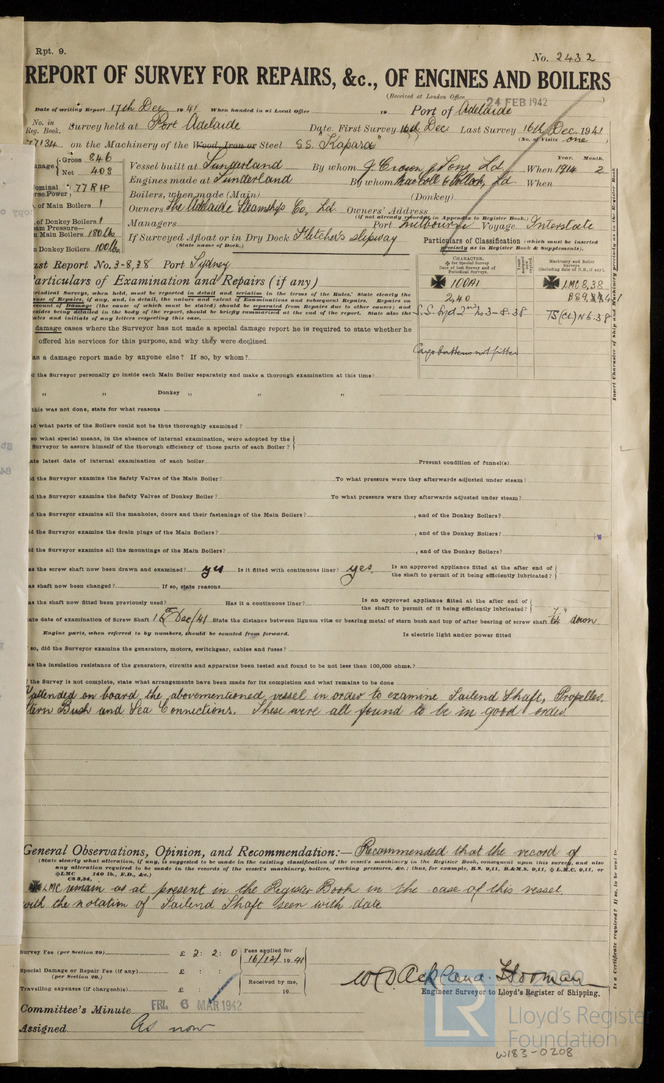 Rpt. 9.
No. 2432
REPORT OF SURVEY FOR REPAIRS, &c., OF ENGINES AND BOILERS
(Received at London Office
24 FEB 1942
Date of writing Report 17th Dec 1941 When handed in at Local Office 19 Port of Adelaide
No. in Reg. Book. Survey held at Port Adelaide Date, First Survey 16th Dec Last Survey 16th Dec 1941
(No. of Visits one)
77134 on the Machinery of the Wood, Iron or Steel S.S. "Kapara"
Gross 846
Net 408
Vessel built at Sunderland By whom J. Crown & Sons Ld When 1914 2
Year. Month.
Engines made at Sunderland By whom When
77 RHP
Boilers, when made (Main) (Donkey)
of Main Boilers 1
Owners The Adelaide Steamship Co, Ld Owners' Address
(if not already recorded in Appendix to Register Book.)
of Donkey Boilers 1
Managers Port Melbourne Voyage Interstate
Main Boilers 180 lb
Donkey Boilers 100 lb
If Surveyed Afloat or in Dry Dock Fletcher's slipway
(State name of Dock.)
Particulars of Classification (which must be inserted precisely as in Register Book & Supplements).
Last Report No. 3-8,38 Port Sydney
Particulars of Examination and Repairs (if any)
CHARACTER.
100A1
2,40
Cargo battens not fitted
LMC 8,38
TS(CL) N 6.38
damage cases where the Surveyor has not made a special damage report he is required to state whether he
offered his services for this purpose, and why they were declined
as a damage report made by anyone else? If so, by whom?
the Surveyor personally go inside each Main Boiler separately and make a thorough examination at this time?
" " Donkey " " "
this was not done, state for what reasons
what parts of the Boilers could not be thus thoroughly examined?
what special means, in the absence of internal examination, were adopted by the
Surveyor to assure himself of the thorough efficiency of those parts of each Boiler?
latest date of internal examination of each boiler Present condition of funnel(s)
the Surveyor examine the Safety Valves of the Main Boiler? To what pressure were they afterwards adjusted under steam?
the Surveyor examine the Safety Valves of Donkey Boiler? To what pressure were they afterwards adjusted under steam?
the Surveyor examine all the manholes, doors and their fastenings of the Main Boilers? , and of the Donkey Boilers?
the Surveyor examine the drain plugs of the Main Boilers? , and of the Donkey Boilers?
the Surveyor examine all the mountings of the Main Boilers? , and of the Donkey Boilers?
the screw shaft now been drawn and examined? yes Is it fitted with continuous liner? yes. Is an approved appliance fitted at the after end of
the shaft to permit of it being efficiently lubricated?
shaft now been changed? If so, state reasons
the shaft now fitted been previously used? Has it a continuous liner? Is an approved appliance fitted at the after end of
the shaft to permit of it being efficiently lubricated?
date of examination of Screw Shaft 16th Dec/41 State the distance between lignum vitæ or bearing metal of stern bush and top of after bearing of screw shaft down
Engine parts, when referred to by numbers, should be counted from forward. Is electric light and/or power fitted
so, did the Surveyor examine the generators, motors, switchgear, cables and fuses?
the insulation resistance of the generators, circuits and apparatus been tested and found to be not less than 100,000 ohms?
the Survey is not complete, state what arrangements have been made for its completion and what remains to be done
Attended on board the abovementioned vessel in order to examine Tailend Shaft, Propeller,
Stern Bush and Sea Connections. These were all found to be in good order
General Observations, Opinion, and Recommendation:— Recommended that the record of
(State clearly what alteration, if any, is suggested to be made in the existing classification of the vessel's machinery in the Register Book, consequent upon this survey, and also
any alteration required to be made in the records of the vessel's machinery, boilers, working pressures, &c.; thus, for example, B.S. 9,11, B.&M.S. 9,11, L.M.C. 9,11, or
LMC 140 lb., F.D., &c.)
LMC remain as at present in the Register Book in the case of this vessel
with the notation of Tailend Shaft seen with date
Survey Fee (per Section 29) £ 2 : 2 : 0 Fees applied for
16/12/1941
Special Damage or Repair Fee (if any) £ : :
(per Section 29.)
Received by me,
Travelling expenses (if chargeable) £ : : 19
W D Ackland Horman
Engineer Surveyor to Lloyd's Register of Shipping.
Committee's Minute FRI. 6 MAR 1942
Assigned As now
© 2020
LR
Lloyd's Register
Foundation
W183-0208